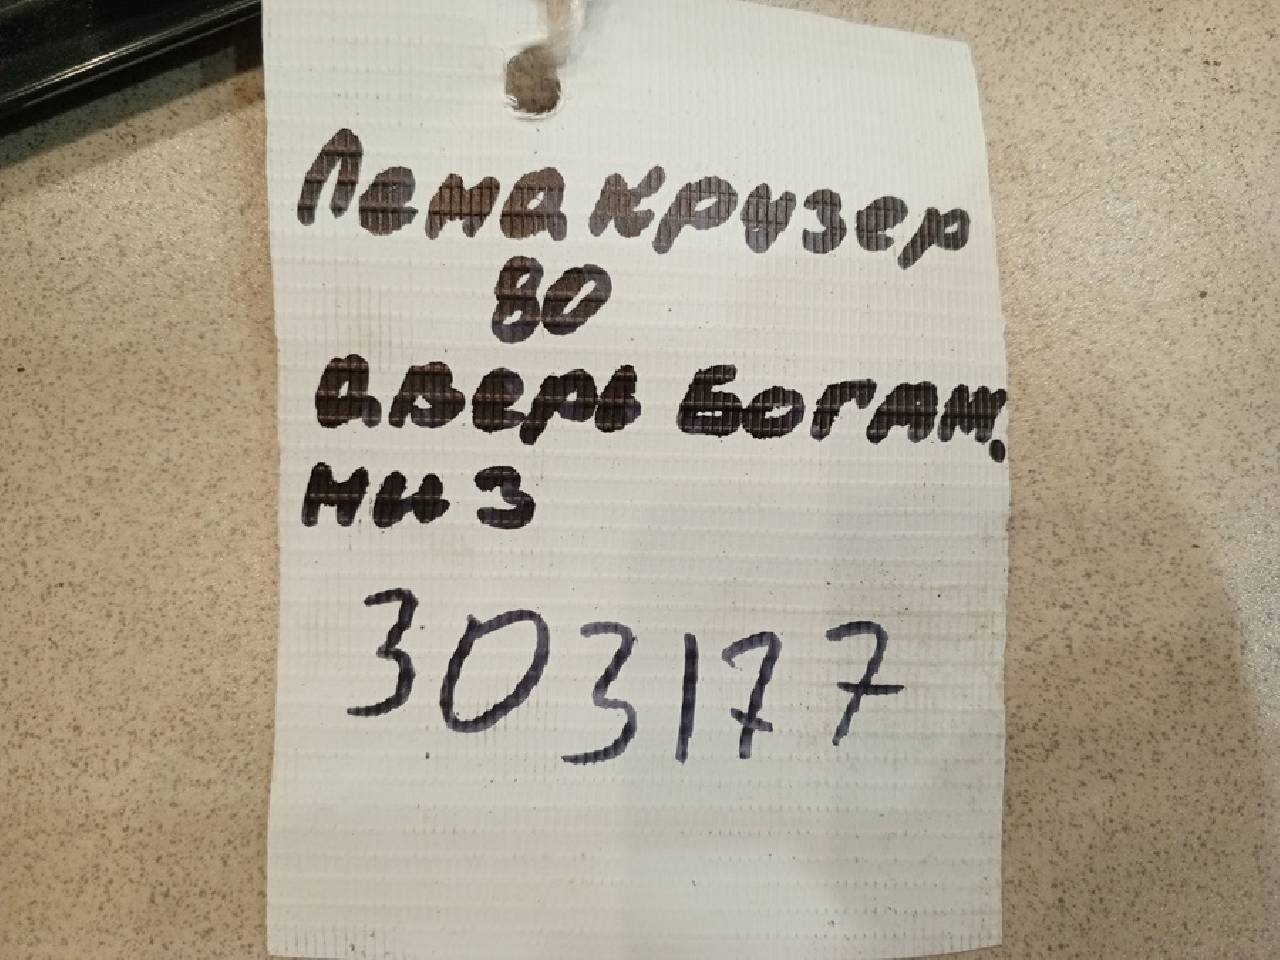 Ленд крузер
80
дверь богаж.
низ
303177